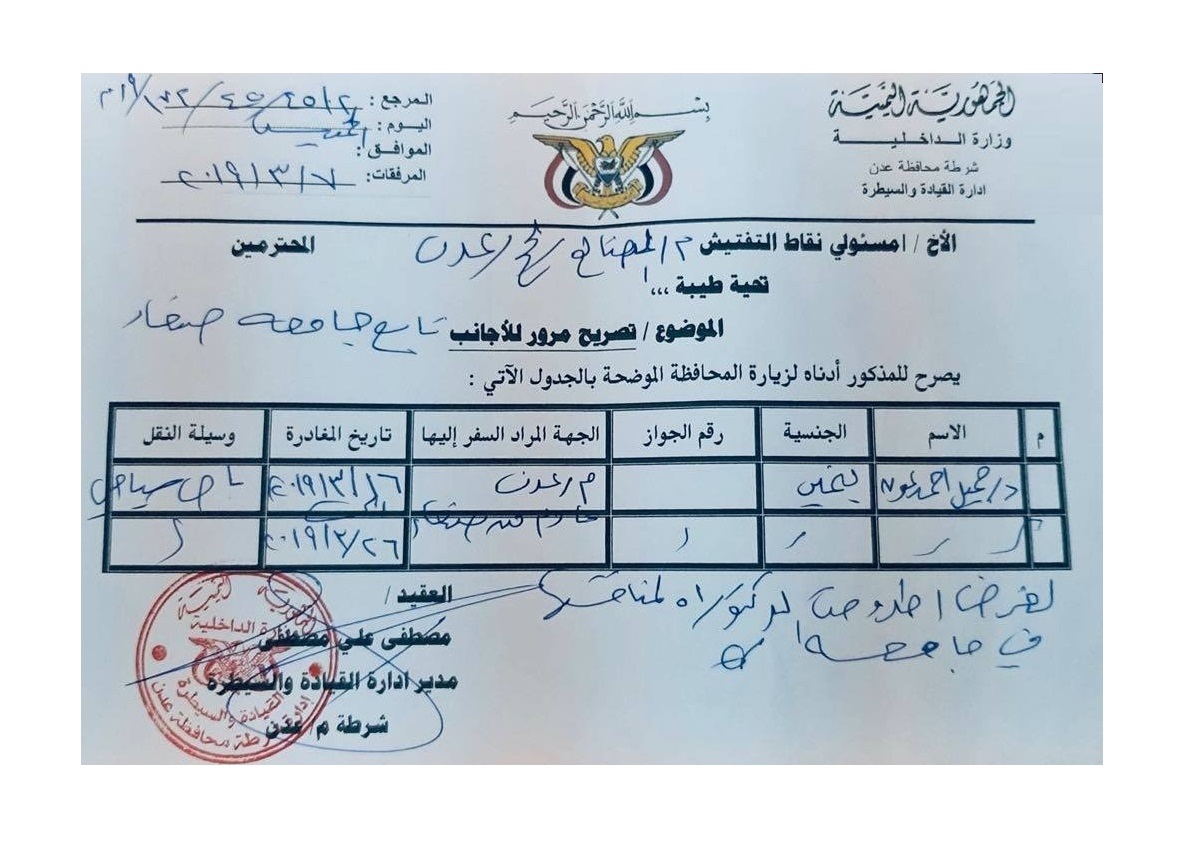 الجمهورية اليمنية
وزارة الداخلية
شرطة محافظة عدن
ادارة القيادة والسيطرة
بسم الله الرحمن الرحيم
المرجع :
اليوم : الخميس
الموافق :
المرفقات: ٢٠١٩/٣/٧
الأخ / مسئولي نقاط التفتيش م/الضالع/لحج/عدن المحترمين
تحية طيبة ,,,
الموضوع / تصريح مرور للأجانب تابع جامعة صنعاء
يصرح للمذكور أدناه لزيارة المحافظة الموضحة بالجدول الآتي :
م الاسم الجنسية رقم الجواز الجهة المراد السفر إليها تاريخ المغادرة وسيلة النقل
د/جميل احمد عون يمني م/عدن ٢٠١٩/٣/١٦ باص سياحي
قادم من صنعاء
٢٠١٩/٣/٢٦
لغرض اطروحة الدكتوراه لمناقشتها
في جامعة
العقيد /
مصطفى علي مصطفى
مدير ادارة القيادة والسيطرة
شرطة م/ عدن
الجمهورية اليمنية
وزارة الداخلية
إدارة القيادة والسيطرة
شرطة محافظة عدن